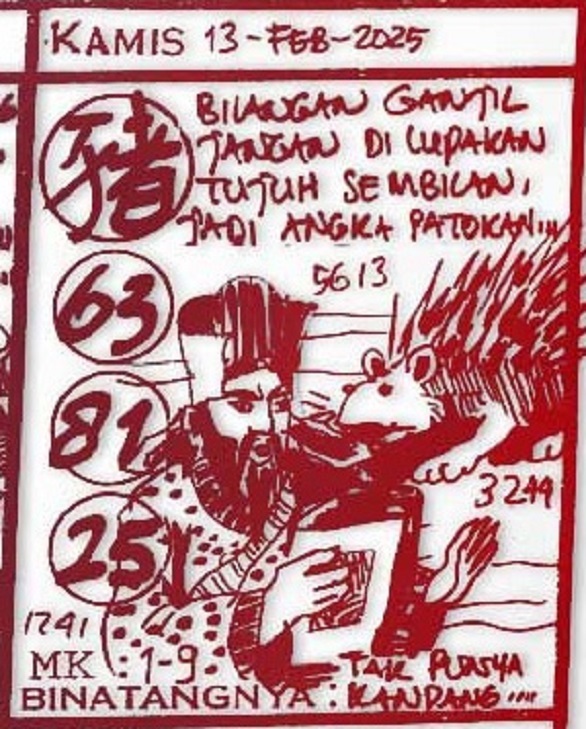 KAMIS 13-FEB-2025
猪
BILANGAN GANJIL
JANGAN DI LUPAKAN
TUJUH SEMBILAN,
JADI ANGKA PATOKAN....
5613
63
81
25
3244
1741
MK : 1-9
BINATANGNYA : TAK PUNYA
KANDANG....